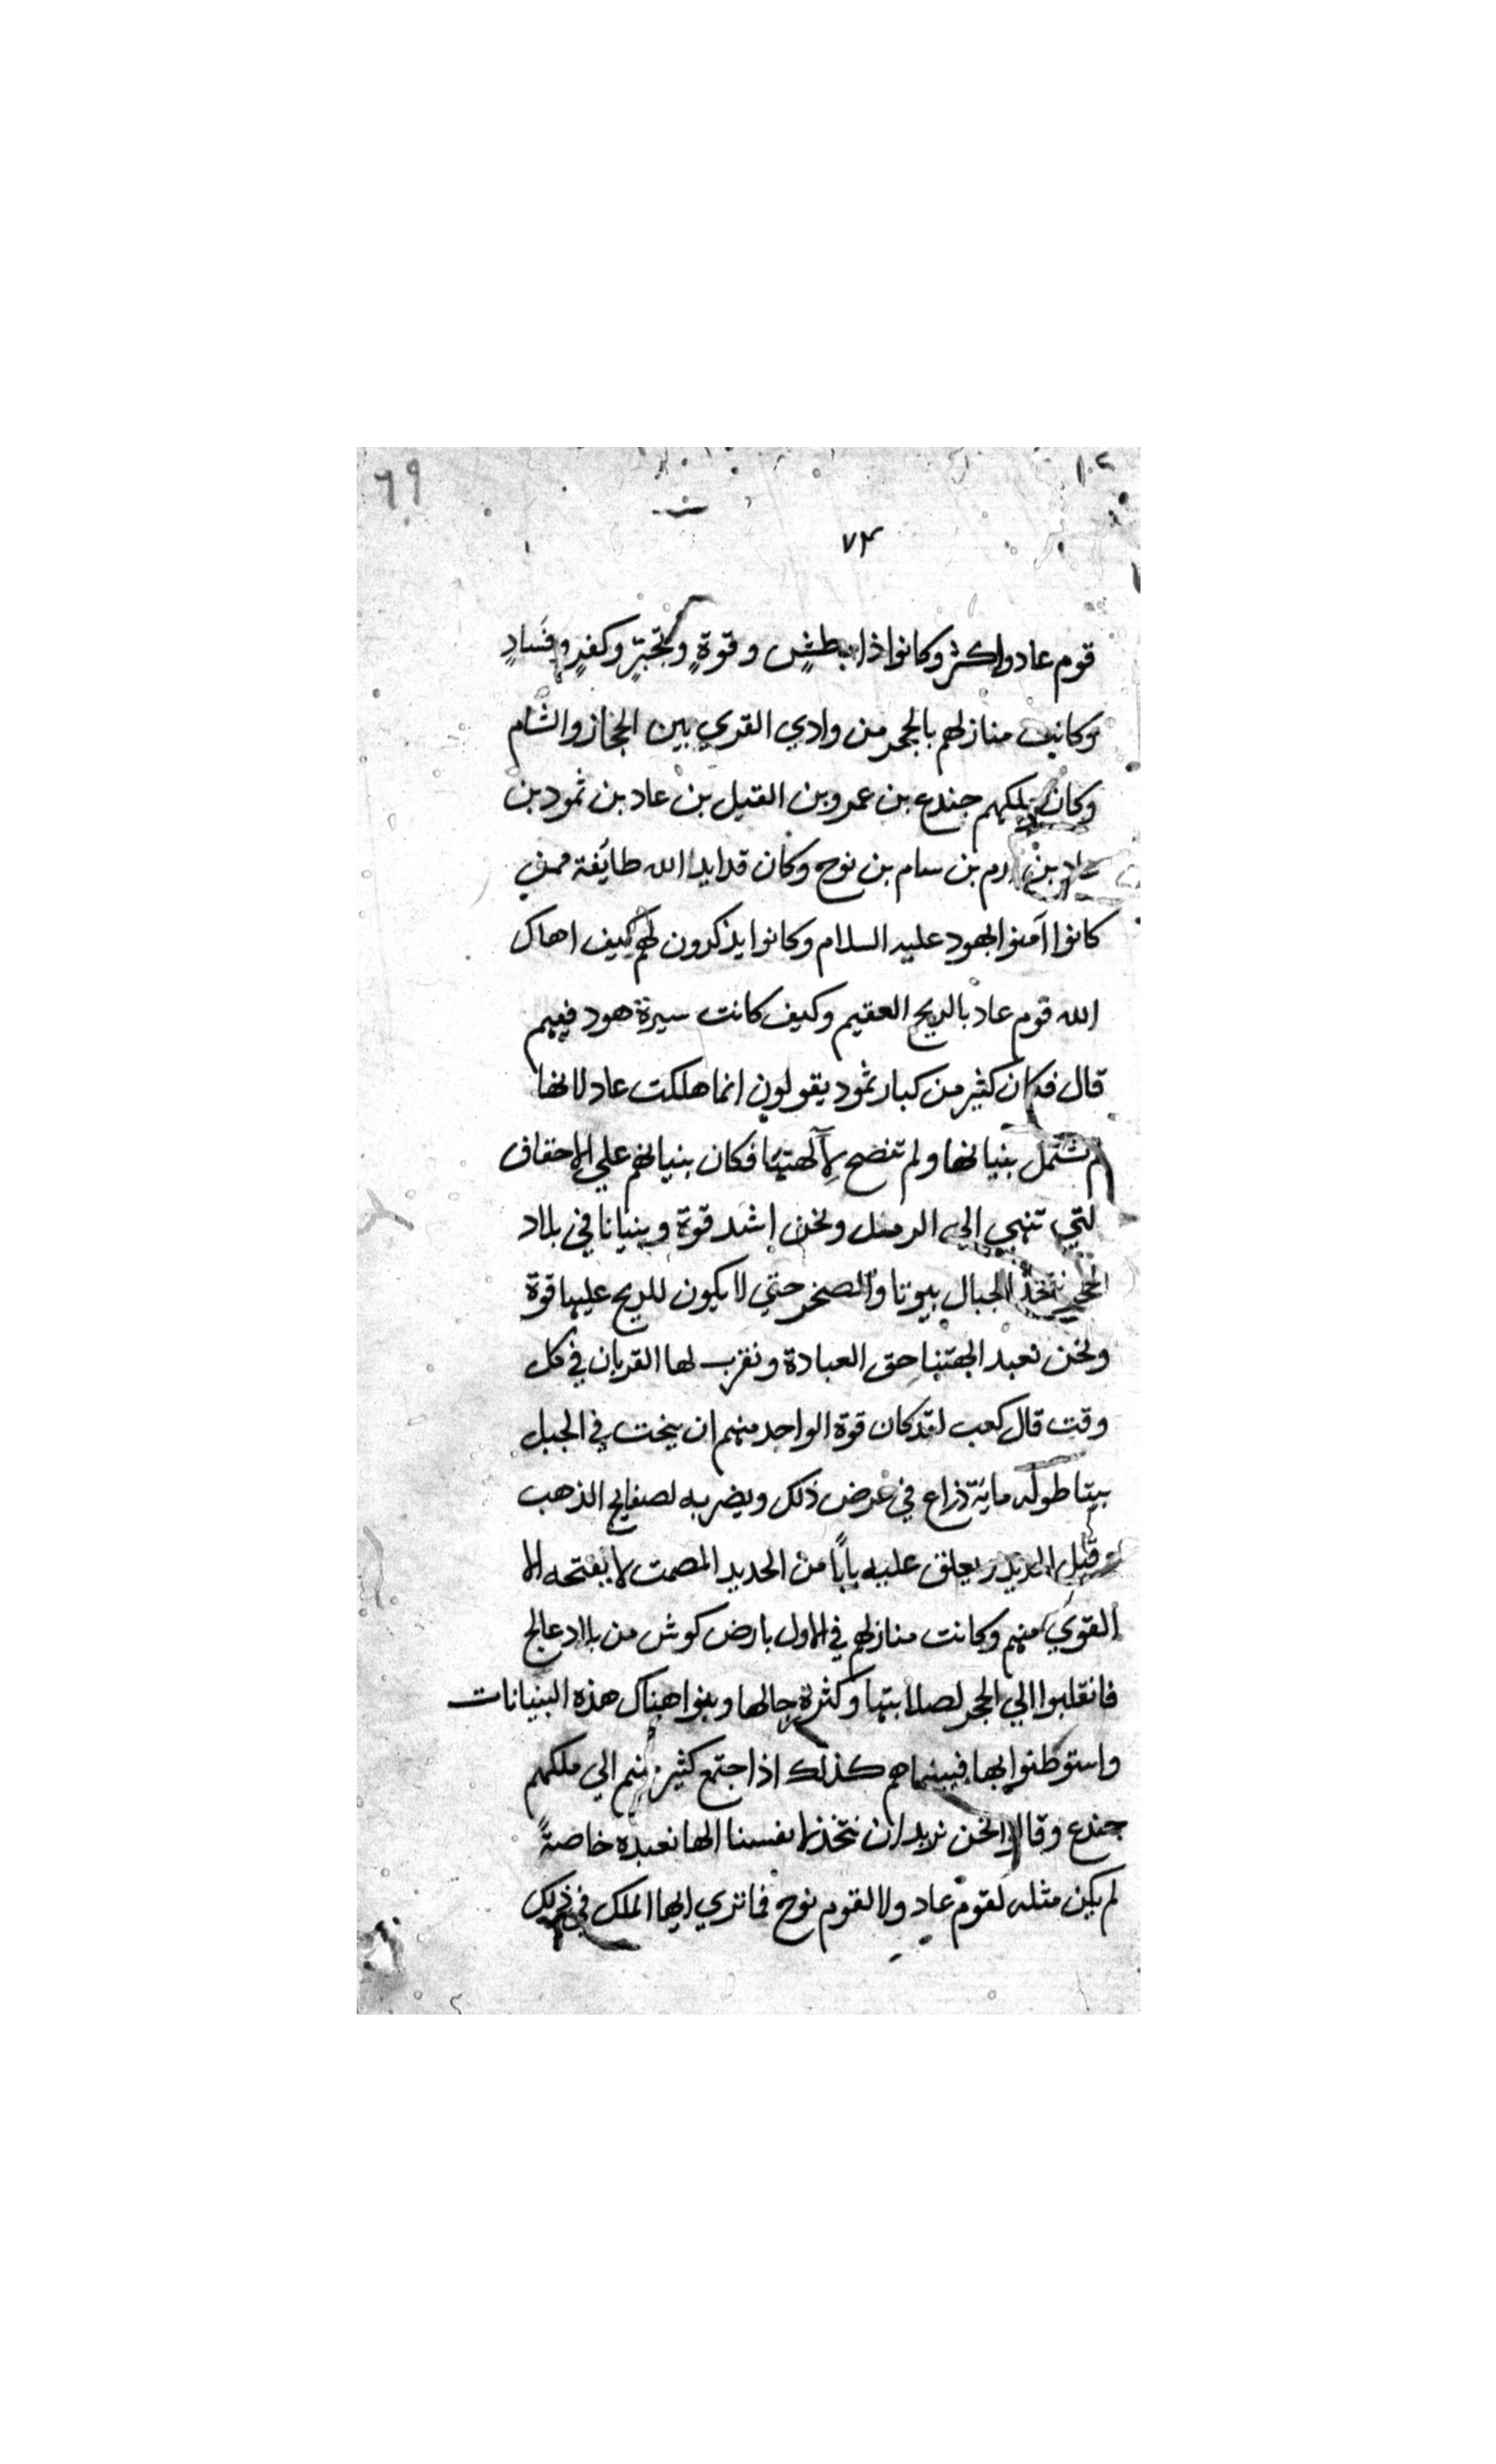 ١٠٢
٦٩
٧٣
قوم عاد واكثر وكانوا ذا بطشٍ وقوةٍ وتجبّرٍ وكفرٍ وفسادٍ
وكانت منازلهم بالحجر من وادي القري بين الحجاز والشام
وكان ملكهم جندع بن عمرو بن القيل بن عاد بن ثمود بن
بن ارم بن سام بن نوح وكان قد ايد الله طايفة ممن
كانوا آمنوا بهود عليه السلام وكانوا يذكرون لهم كيف اهلك
الله قوم عاد بالريح العقيم وكيف كانت سيرة هود فيهم
قال فكان كثير من كبار ثمود يقولون انما هلكت عاد لانها
لم تشتمل بنيانها ولم تنصح لآلهتها فكان بنيانهم علي الاحقاف
لتي تنهي الي الرمل ونحن اشد قوة وبنيانا في بلاد
الحجر نتخذ الجبال بيوتا والصخر حتي لا يكون للريح عليها قوة
ونحن نعبد الهتنا حق العبادة ونقرب لها القربان في كل
وقت قال كعب لقد كان قوة الواحد منهم ان ينحت في الجبل
بيتا طوله ماية ذراع في عرض ذلك ويضربه لصفايح الذهب
وقيل الحديد ويعلق عليه باباً من الحديد المصمت لا يفتحه الا
القوي منهم وكانت منازلهم في الاول بارض كوش من بلاد عالج
فانقلبوا الي الحجر لصلابتها وكثرة جبالها وبنوا هناك هذه البنيانات
واستوطنوا بها فبينما هم كذلك اذ اجتمع كثير منهم الي ملكهم
جندع وقالوا نحن نريد ان نتخذ لانفسنا الها نعبده خاصةً
لم يكن مثله لقوم عاد ولا لقوم نوح فما تري ايها الملك في ذلك